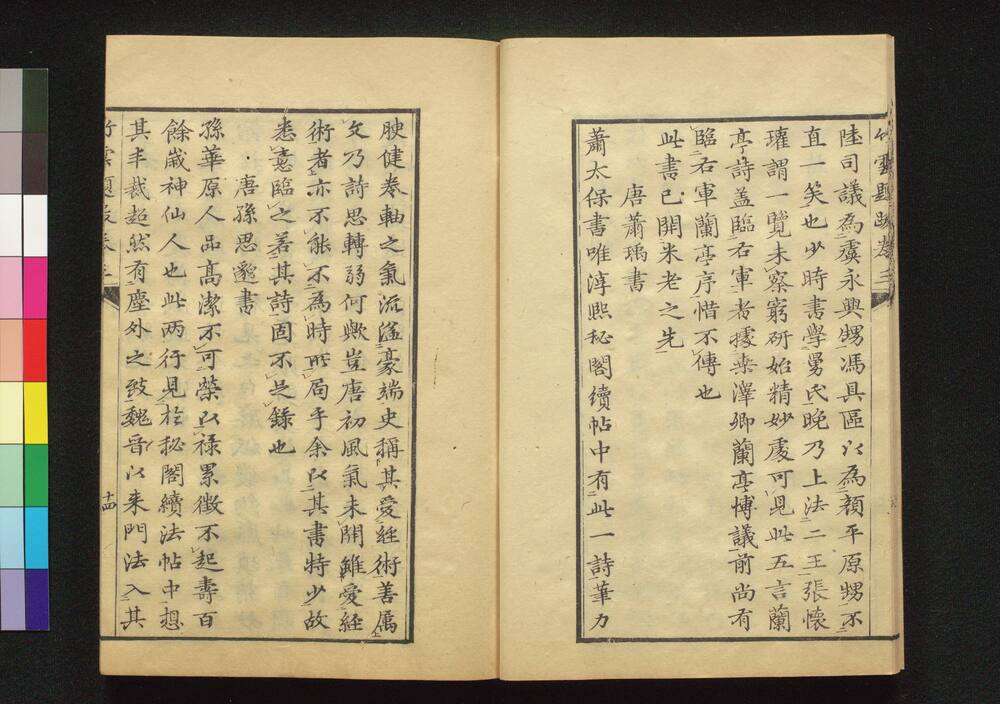 竹雲題跋卷三
陸司議為虞永興甥馮具區以為顏平原甥不
直一笑也少時書學舅氏晚乃上法二王張懷
瓘謂一覽未察窮研始精妙處可見此五言蘭
亭詩盖臨右軍者據桒澤卿蘭亭博議前尚有
臨右軍蘭亭序惜不傳也
此書已開米老之先
唐蕭瑀書
蕭太保書唯淳熙秘閣續帖中有此一詩筆力
腴健卷軸之氣流溢豪端史稱其愛經術善属
文乃詩思轉弱何歟豈唐初風氣未開雖愛經
術者亦不能不為時所局乎余以其書特少故
悉意臨之若其詩固不足錄也
唐孫思邈書
孫華原人品高潔不可榮以祿累徴不起壽百
餘歲神仙人也此兩行見於秘閣續法帖中想
其丰裁超然有塵外之致魏晉以来門法入其
竹雲題跋卷三
十四